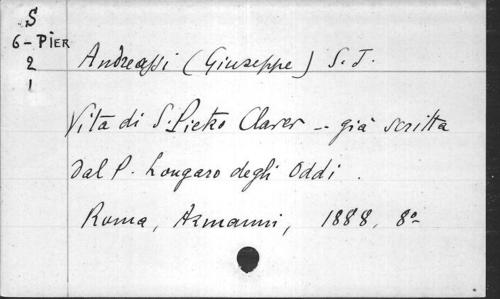 S
6-PIER
2
1
Andreassi (Giuseppe) S.J.
Vita di S. Pietro Claver -- già scritta
dal P. Longaro degli Oddi.
Roma, Armanni, 1888, 8º